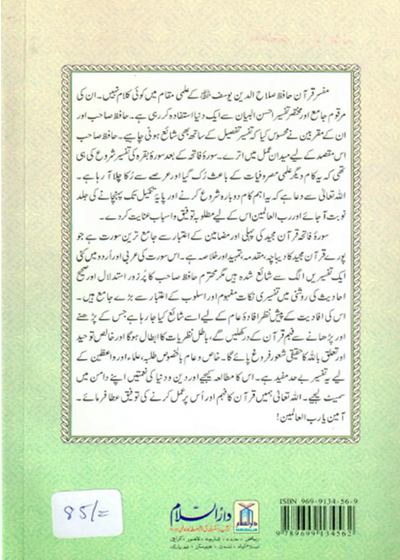 مفسر قرآن حافظ صلاح الدین یوسف ﷾ کے علمی مقام میں کوئی کلام نہیں۔ ان کی
مرقوم جامع اور مختصر تفسیر احسن البیان سے ایک دنیا استفادہ کر رہی ہے۔ حافظ صاحب اور
ان کے مقربین نے محسوس کیا کہ تفسیر تفصیل کے ساتھ بھی شائع ہونی چاہیے۔ حافظ صاحب
اس مقصد کے لیے میدان عمل میں اترے۔ سورۂ فاتحہ کے بعد سورۂ بقرہ کی تفسیر شروع کی ہی
تھی کہ یہ کام دیگر علمی مصروفیات کے باعث رک گیا اور عرصے سے رکا چلا آ رہا ہے۔
اللہ تعالیٰ سے دعا ہے کہ یہ اہم کام دوبارہ شروع کرنے اور پایۂ تکمیل تک پہنچانے کی جلد
نوبت آ جائے اور رب العالمین اس کے لیے مطلوبہ توفیق و اسباب عنایت کر دے۔
سورۂ فاتحہ قرآن مجید کی پہلی اور مضامین کے اعتبار سے جامع ترین سورت ہے جو
پورے قرآن مجید کا دیباچہ، مقدمہ، تمہید اور خلاصہ ہے۔ اس سورت کی عربی اور اُردو میں کئی
ایک تفسیریں الگ سے شائع شدہ ہیں مگر محترم حافظ صاحب کا پُرزور استدلال اور صحیح
احادیث کی روشنی میں تفسیری نکات مفہوم اور اسلوب کے اعتبار سے بڑے جامع ہیں۔
اس کی افادیت کے پیش نظر افادۂ عام کے لیے اسے شائع کیا جا رہا ہے جس کے پڑھنے
اور پڑھانے سے فہم قرآن کے در کھلیں گے، باطل نظریات کا ابطال ہوگا اور خالص توحید
اور تعلق باللہ کا حقیقی شعور فروغ پائے گا۔ خاص و عام بالخصوص طلبہ، علماء اور واعظین کے
لیے یہ تفسیر بے حد مفید ہے۔ اس کا مطالعہ کیجیے اور دین و دنیا کی نعمتیں اپنے دامن میں
سمیٹ لیجیے۔ اللہ تعالیٰ ہمیں قرآن کا فہم اور اُس پر عمل کرنے کی توفیق عطا فرمائے۔
آمین یا رب العالمین!
85/=
دارالسلام
ISBN 969-9134-56-9
9 789699 134562